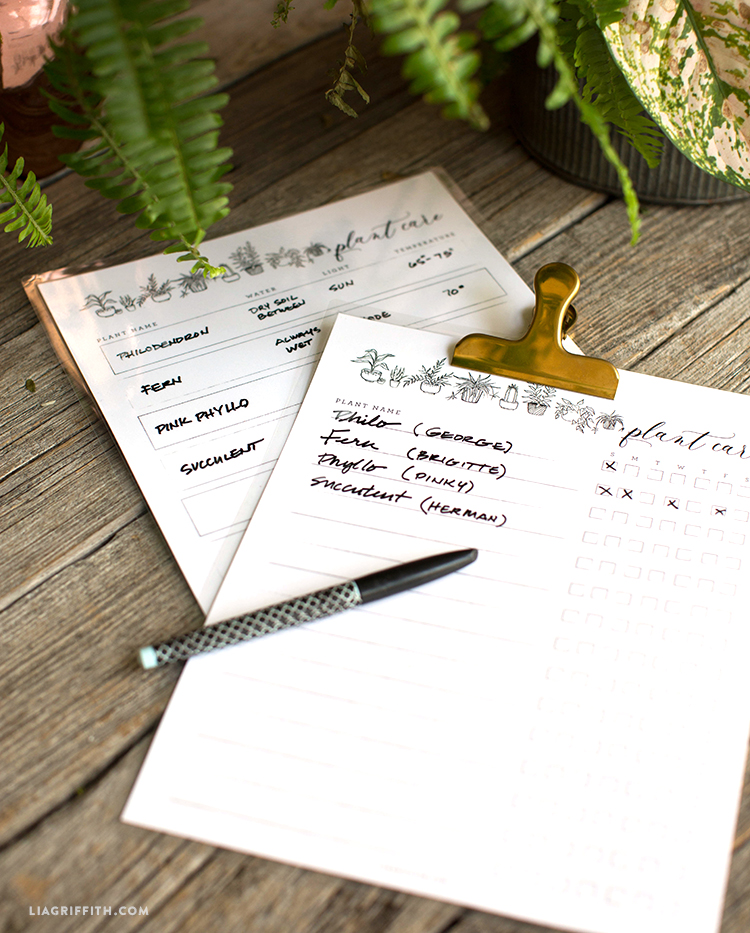 plant care
PLANT NAME WATER LIGHT TEMPERATURE
PHILODENDRON DRY SOIL BETWEEN SUN 65-75°
FERN ALWAYS WET 70°
PINK PHYLLO
SUCCULENT
plant care
PLANT NAME S M T W T F S
Philo (GEORGE) X
Fern (BRIGITTE) X X X X
Phyllo (PINKY)
Succulent (HERMAN)
LIAGRIFFITH.COM